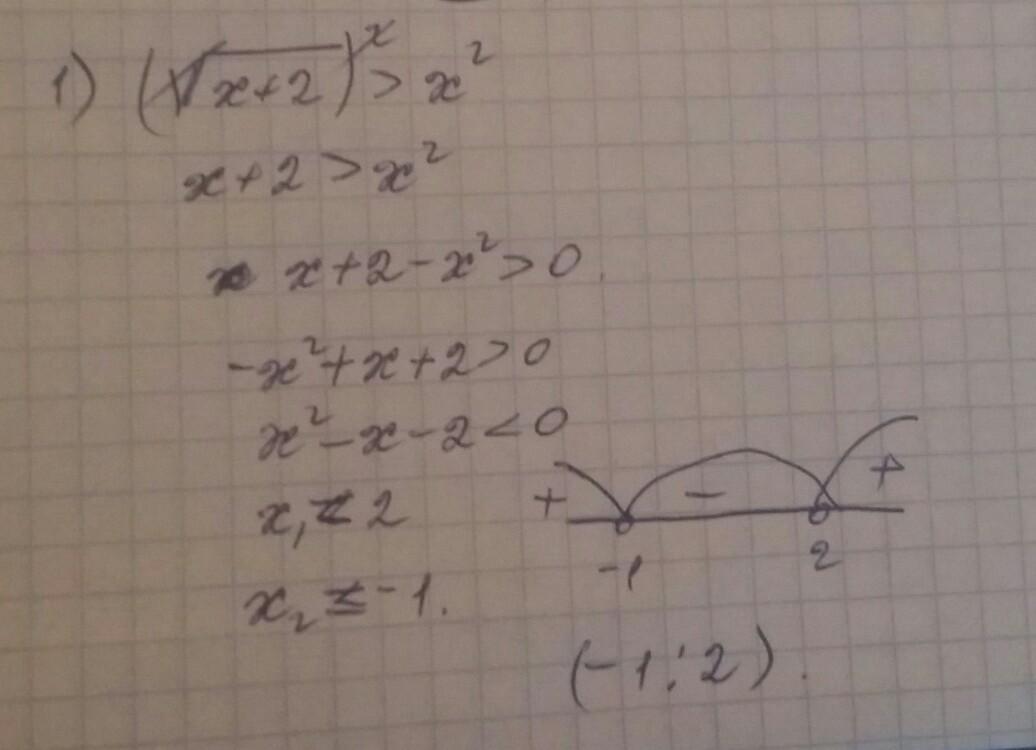 1) (√x+2)^x > x²
x+2 > x²
x+2-x² > 0.
-x²+x+2 > 0
x²-x-2 < 0
+ - +
x₁ = 2
-1 2
x₂ = -1.
(-1; 2).